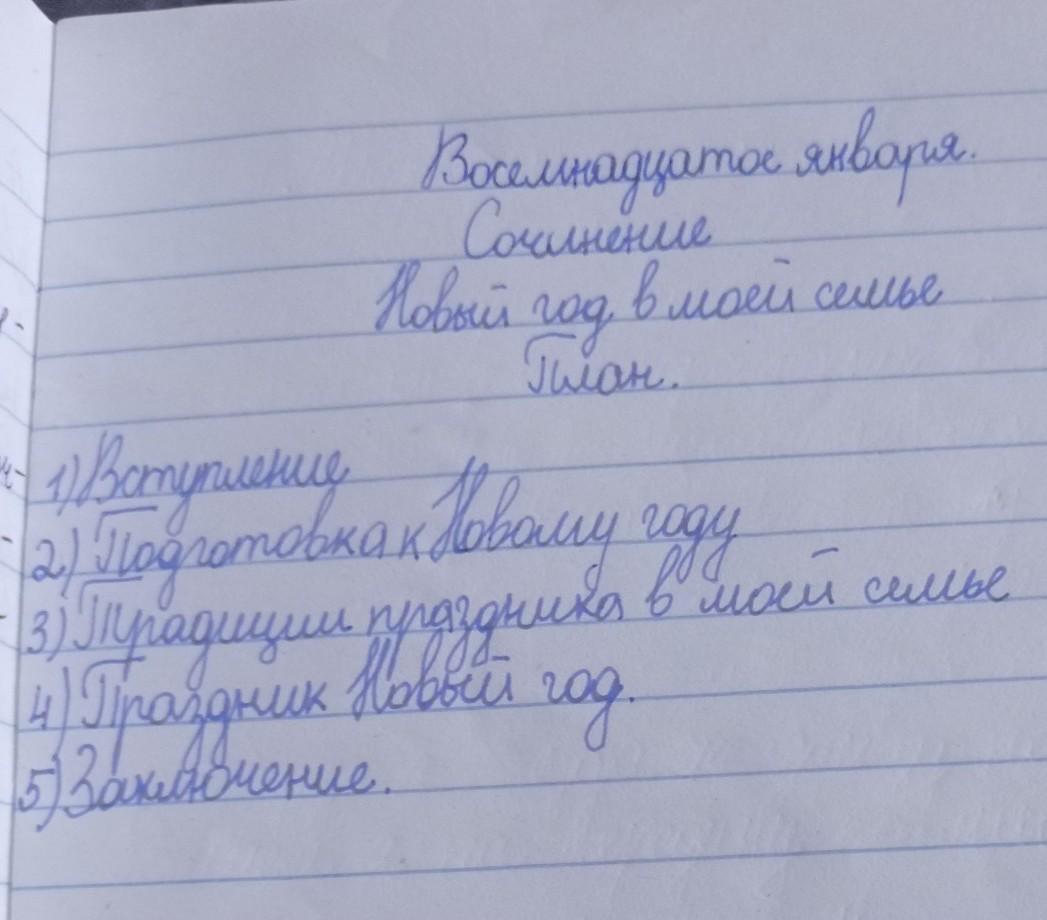 Восемнадцатое января.
Сочинение
Новый год в моей семье
План.
1) Вступление
2) Подготовка к Новому году
3) Традиции праздника в моей семье
4) Праздник Новый год.
5) Заключение.